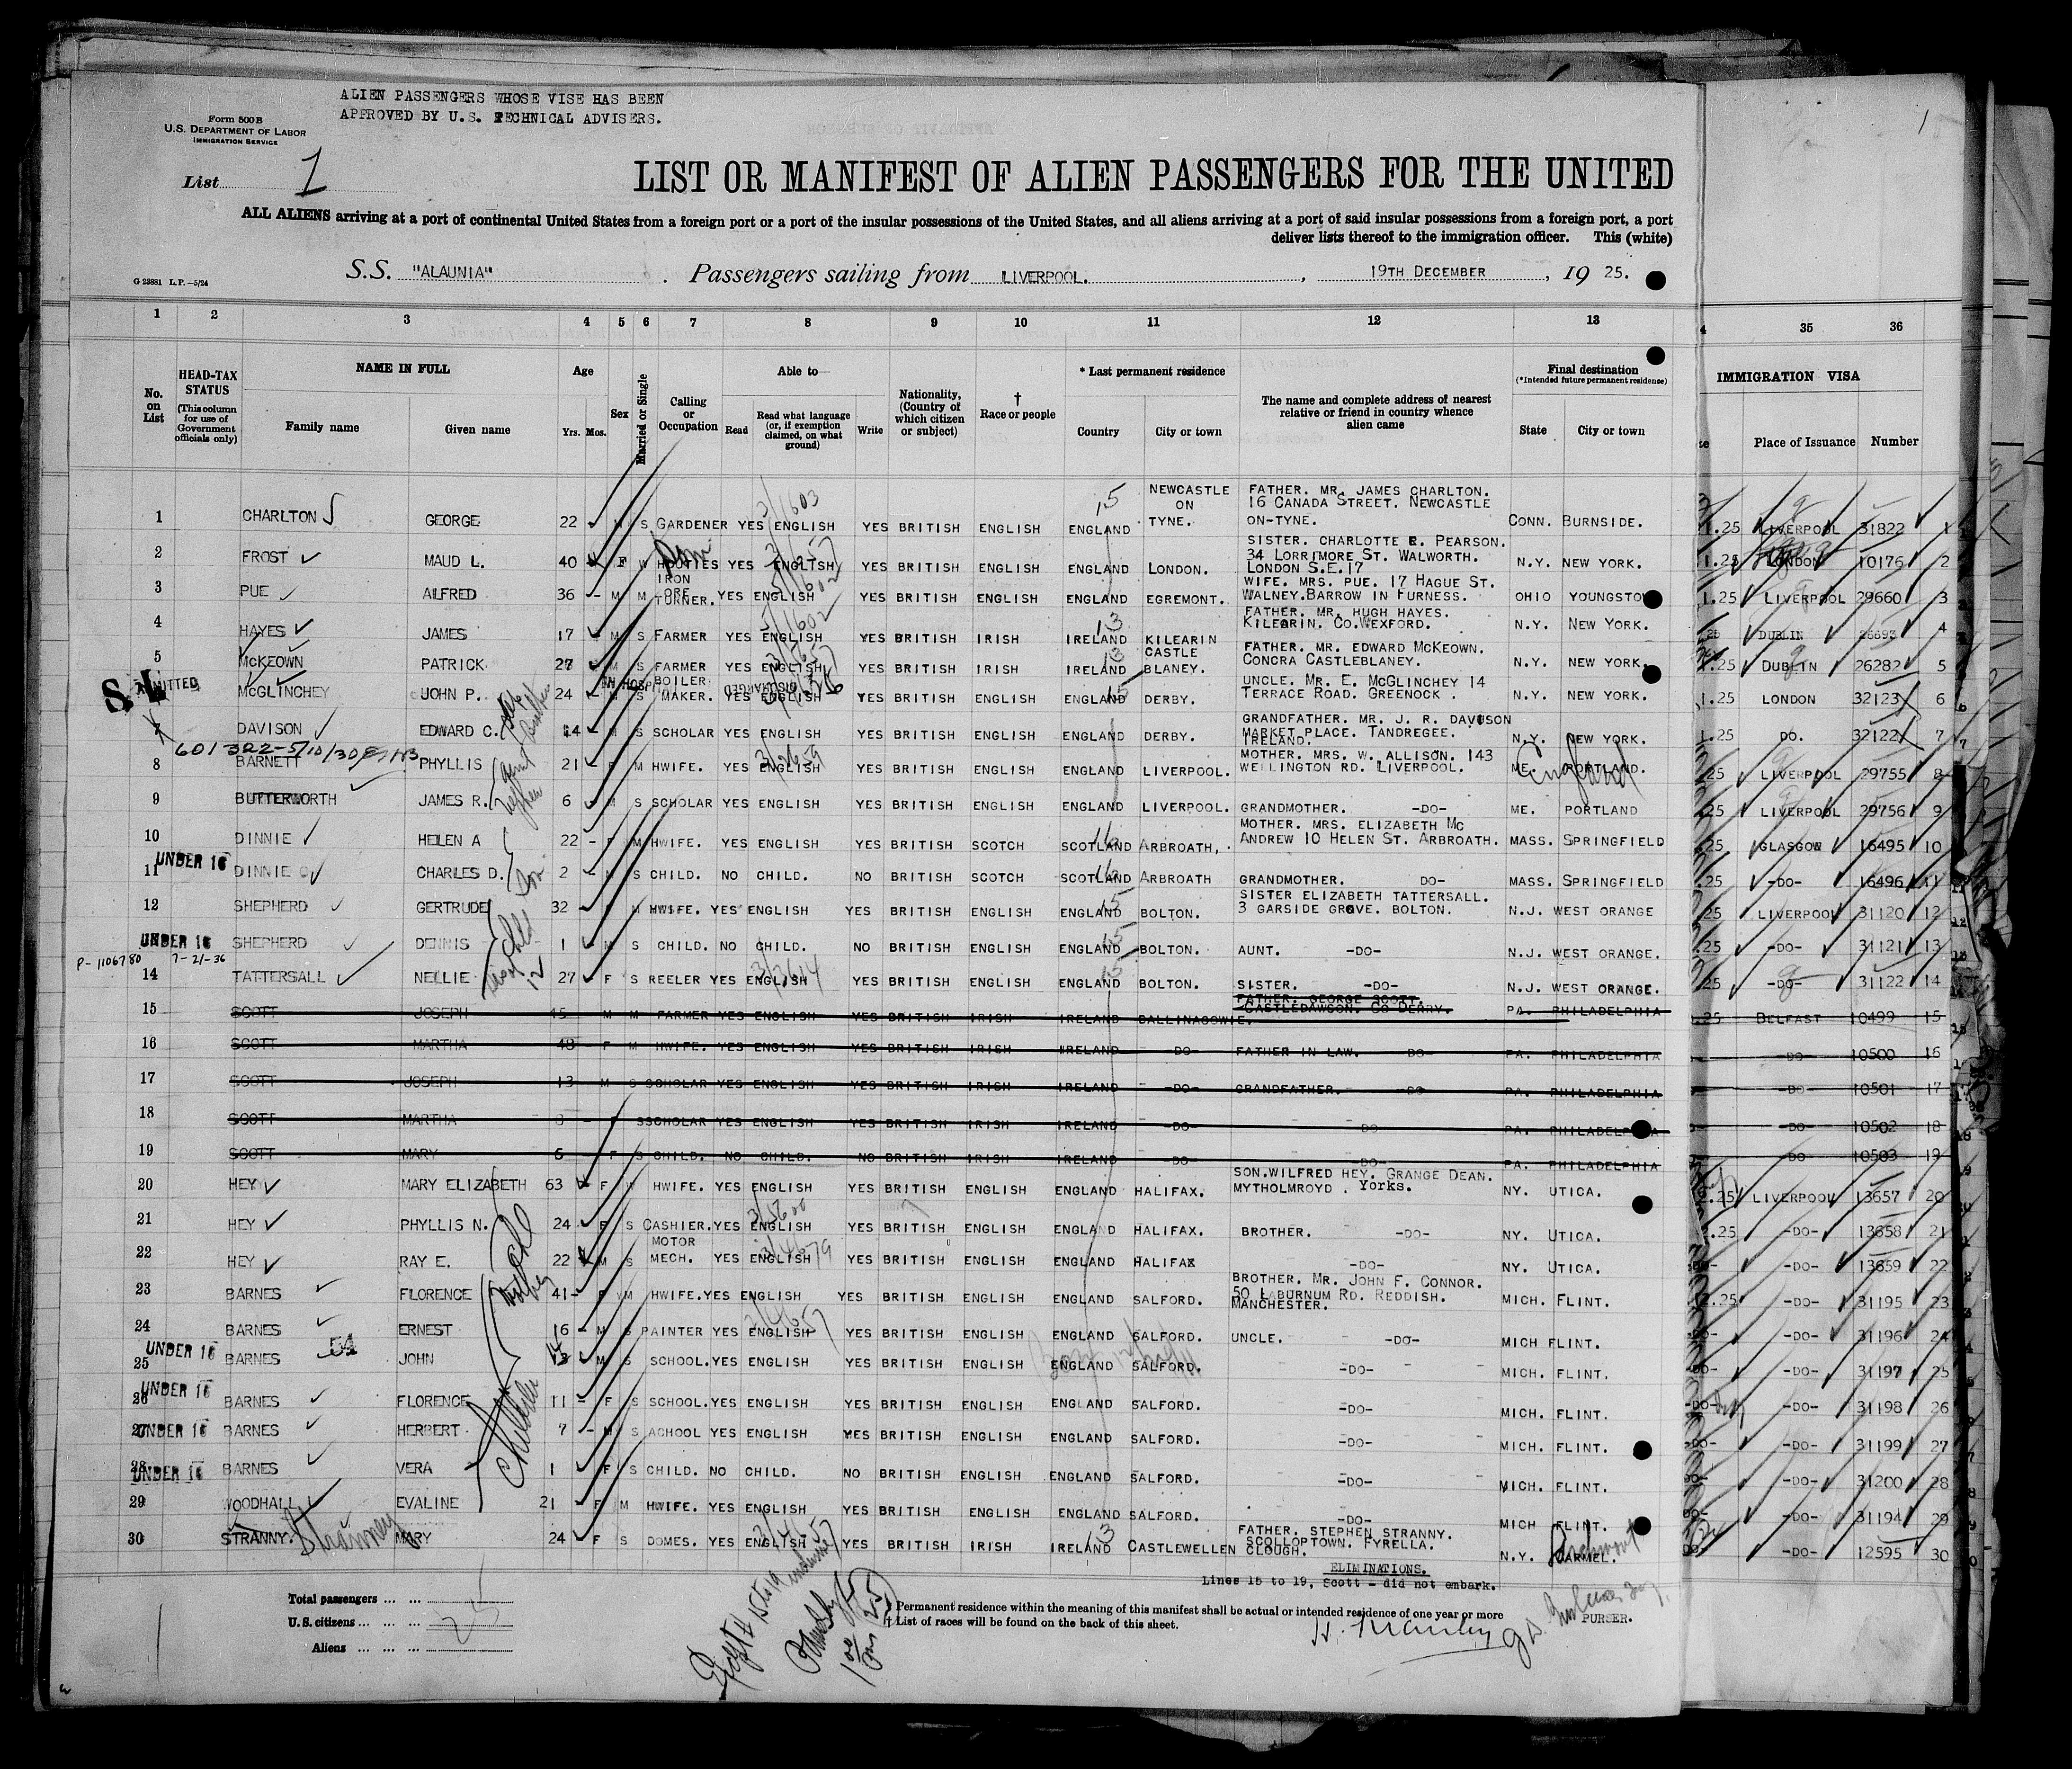 ALIEN PASSENGERS WHOSE VISE HAS BEEN
APPROVED BY U.S. TECHNICAL ADVISERS.
1
Form 500 B
U.S. DEPARTMENT OF LABOR
IMMIGRATION SERVICE
List 1
LIST OR MANIFEST OF ALIEN PASSENGERS FOR THE UNITED
ALL ALIENS arriving at a port of continental United States from a foreign port or a port of the insular possessions of the United States, and all aliens arriving at a port of said insular possessions from a foreign port, a port
deliver lists thereof to the immigration officer. This (white)
G 23881 L.P.—5/24
S.S. "ALAUNIA". Passengers sailing from LIVERPOOL., 19TH DECEMBER, 19 25.
1 2 3 4 5 6 7 8 9 10 11 12 13 4 35 36
No. on List
HEAD-TAX STATUS (This column for use of Government officials only)
NAME IN FULL
Family name Given name
Age
Yrs. Mos.
Sex
Married or Single
Calling or Occupation
Able to—
Read
Read what language (or, if exemption claimed, on what ground)
Write
Nationality, (Country of which citizen or subject)
† Race or people
* Last permanent residence
Country City or town
The name and complete address of nearest relative or friend in country whence alien came
Final destination
(*Intended future permanent residence)
State City or town
IMMIGRATION VISA
te Place of Issuance Number
1 CHARLTON GEORGE 22 S GARDENER YES ENGLISH YES BRITISH ENGLISH ENGLAND NEWCASTLE ON TYNE. FATHER. MR. JAMES CHARLTON. 16 CANADA STREET. NEWCASTLE ON-TYNE. CONN. BURNSIDE. 1.25 LIVERPOOL 31822 1
2 FROST MAUD L. 40 F W HDUTIES YES ENGLISH YES BRITISH ENGLISH ENGLAND LONDON. SISTER. CHARLOTTE E. PEARSON. 34 LORRIMORE ST. WALWORTH. LONDON S.E.17 N.Y. NEW YORK. 1.25 LONDON 10176 2
3 PUE ALFRED 36 - M M IRON ORE TURNER. YES ENGLISH YES BRITISH ENGLISH ENGLAND EGREMONT. WIFE. MRS. PUE. 17 HAGUE ST. WALNEY. BARROW IN FURNESS. OHIO YOUNGSTO 1.25 LIVERPOOL 29660 3
4 HAYES JAMES 17 - M S FARMER YES ENGLISH YES BRITISH IRISH IRELAND KILEARIN FATHER. MR. HUGH HAYES. KILEARIN. CO.WEXFORD. N.Y. NEW YORK. 25 DUBLIN 4
5 MCKEOWN PATRICK 27 - M S FARMER YES ENGLISH YES BRITISH IRISH IRELAND CASTLE BLANEY. FATHER. MR. EDWARD MCKEOWN. CONCRA CASTLEBLANEY. N.Y. NEW YORK. 1.25 DUBLIN 26282 5
S.I. ADMITTED IN HOSP DISCHARGED
MCGLINCHEY JOHN P. 24 - M S BOILER MAKER. YES ENGLISH YES BRITISH ENGLISH ENGLAND DERBY. UNCLE. MR. E. MCGLINCHEY 14 TERRACE ROAD. GREENOCK. N.Y. NEW YORK. 1.25 LONDON 32123 6
DAVISON EDWARD C. 14 M S SCHOLAR YES ENGLISH YES BRITISH ENGLISH ENGLAND DERBY. GRANDFATHER. MR. J. R. DAVISON MARKET PLACE. TANDREGEE. IRELAND. N.Y. NEW YORK. 1.25 DO. 32122 7
8 BARNETT PHYLLIS 21 - F M HWIFE. YES ENGLISH YES BRITISH ENGLISH ENGLAND LIVERPOOL. MOTHER. MRS. W. ALLISON. 143 WELLINGTON RD. LIVERPOOL. ME. PORTLAND. 25 LIVERPOOL 29755 8
9 BUTTERWORTH JAMES R. 6 - M S SCHOLAR YES ENGLISH YES BRITISH ENGLISH ENGLAND LIVERPOOL. GRANDMOTHER. -DO- ME. PORTLAND 25 LIVERPOOL 29756 9
10 DINNIE HELEN A 22 - F M HWIFE. YES ENGLISH YES BRITISH SCOTCH SCOTLAND ARBROATH, MOTHER. MRS. ELIZABETH MC ANDREW 10 HELEN ST. ARBROATH. MASS. SPRINGFIELD 25 GLASGOW 16495 10
UNDER 16
11 DINNIE CHARLES D. 2 - M S CHILD. NO CHILD. NO BRITISH SCOTCH SCOTLAND ARBROATH GRANDMOTHER. DO- MASS. SPRINGFIELD 25 -DO- 16496 11
12 SHEPHERD GERTRUDE 32 F M HWIFE. YES ENGLISH YES BRITISH ENGLISH ENGLAND BOLTON. SISTER ELIZABETH TATTERSALL. 3 GARSIDE GROVE. BOLTON. N.J. WEST ORANGE 25 LIVERPOOL 31120 12
UNDER 16 SHEPHERD DENNIS 1 - M S CHILD. NO CHILD. NO BRITISH ENGLISH ENGLAND BOLTON. AUNT. -DO- N.J. WEST ORANGE. 25 -DO- 31121 13
P-1106780 7-21-36
14 TATTERSALL NELLIE 27 - F S REELER YES ENGLISH YES BRITISH ENGLISH ENGLAND BOLTON. SISTER. -DO- N.J. WEST ORANGE. 25 -DO- 31122 14
15 SCOTT JOSEPH 45 M M FARMER YES ENGLISH YES BRITISH IRISH IRELAND BALLINAGOWIE. FATHER. GEORGE SCOTT. CASTLEDAWSON. CO DERRY. PA. PHILADELPHIA .25 BELFAST 10499 15
16 SCOTT MARTHA 48 - F M HWIFE. YES ENGLISH YES BRITISH IRISH IRELAND -DO- FATHER IN LAW. DO- PA. PHILADELPHIA -DO- 10500 16
17 SCOTT JOSEPH 13 M S SCHOLAR YES ENGLISH YES BRITISH IRISH IRELAND -DO- GRANDFATHER. -DO PA. PHILADELPHIA -DO 10501 17
18 SCOTT MARTHA 8 F S SCHOLAR YES ENGLISH YES BRITISH IRISH IRELAND -DO- DO PA. PHILADELPHIA -DO- 10502 18
19 SCOTT MARY 6 - F S CHILD. NO CHILD. NO BRITISH IRISH IRELAND -DO -DO- PA. PHILADELPHIA DO 10503 19
20 HEY MARY ELIZABETH 63 F W HWIFE. YES ENGLISH YES BRITISH ENGLISH ENGLAND HALIFAX. SON.WILFRED HEY. GRANGE DEAN. MYTHOLMROYD. Yorks. NY. UTICA. .25 LIVERPOOL 13657 20
21 HEY PHYLLIS N. 24 - F S CASHIER. YES ENGLISH YES BRITISH ENGLISH ENGLAND HALIFAX. BROTHER. -DO- NY. UTICA. .25 -DO- 13658 21
22 HEY RAY E. 22 M S MOTOR MECH. YES ENGLISH YES BRITISH ENGLISH ENGLAND HALIFAX -DO- NY. UTICA. DO- -DO- 13659 22
23 BARNES FLORENCE 41- F M HWIFE. YES ENGLISH YES BRITISH ENGLISH ENGLAND SALFORD. BROTHER. MR. JOHN F. CONNOR. 50 LABURNUM RD. REDDISH. MANCHESTER. MICH. FLINT. 2.25 -DO- 31195 23
24 BARNES ERNEST 16 - M S PAINTER YES ENGLISH YES BRITISH ENGLISH ENGLAND SALFORD. UNCLE. -DO- MICH FLINT. DO- -DO- 31196 24
UNDER 16 54
25 BARNES JOHN M S SCHOOL. YES ENGLISH YES BRITISH ENGLISH ENGLAND SALFORD. -DO- MICH. FLINT. DO- -DO- 31197 25
UNDER 16
26 BARNES FLORENCE 11 - F S SCHOOL. YES ENGLISH YES BRITISH ENGLISH ENGLAND SALFORD. -DO- MICH. FLINT. -DO- -DO- 31198 26
27 UNDER 16 BARNES HERBERT 7 - M S ACHOOL YES ENGLISH YES BRITISH ENGLISH ENGLAND SALFORD. -DO- MICH. FLINT. DO- -DO- 31199 27
28 UNDER 16 BARNES VERA 1 F S CHILD. NO CHILD. NO BRITISH ENGLISH ENGLAND SALFORD. -DO- MICH. FLINT. DO- -DO- 31200 28
29 WOODHALL EVALINE 21 - F M HWIFE. YES ENGLISH YES BRITISH ENGLISH ENGLAND SALFORD. -DO- MICH FLINT. DO- -DO- 31194 29
30 STRANNY. Stranney MARY 24 - F S DOMES. YES ENGLISH YES BRITISH IRISH IRELAND CASTLEWELLEN FATHER. STEPHEN STRANNY. SCOLLOPTOWN. FYRELLA. CLOUGH. N.Y. CARMEL. DO- -DO- 12595 30
ELIMINATIONS.
Lines 15 to 19, Scott - did not embark.
Total passengers
U.S. citizens 25
Aliens
* Permanent residence within the meaning of this manifest shall be actual or intended residence of one year or more
† List of races will be found on the back of this sheet.
PURSER.